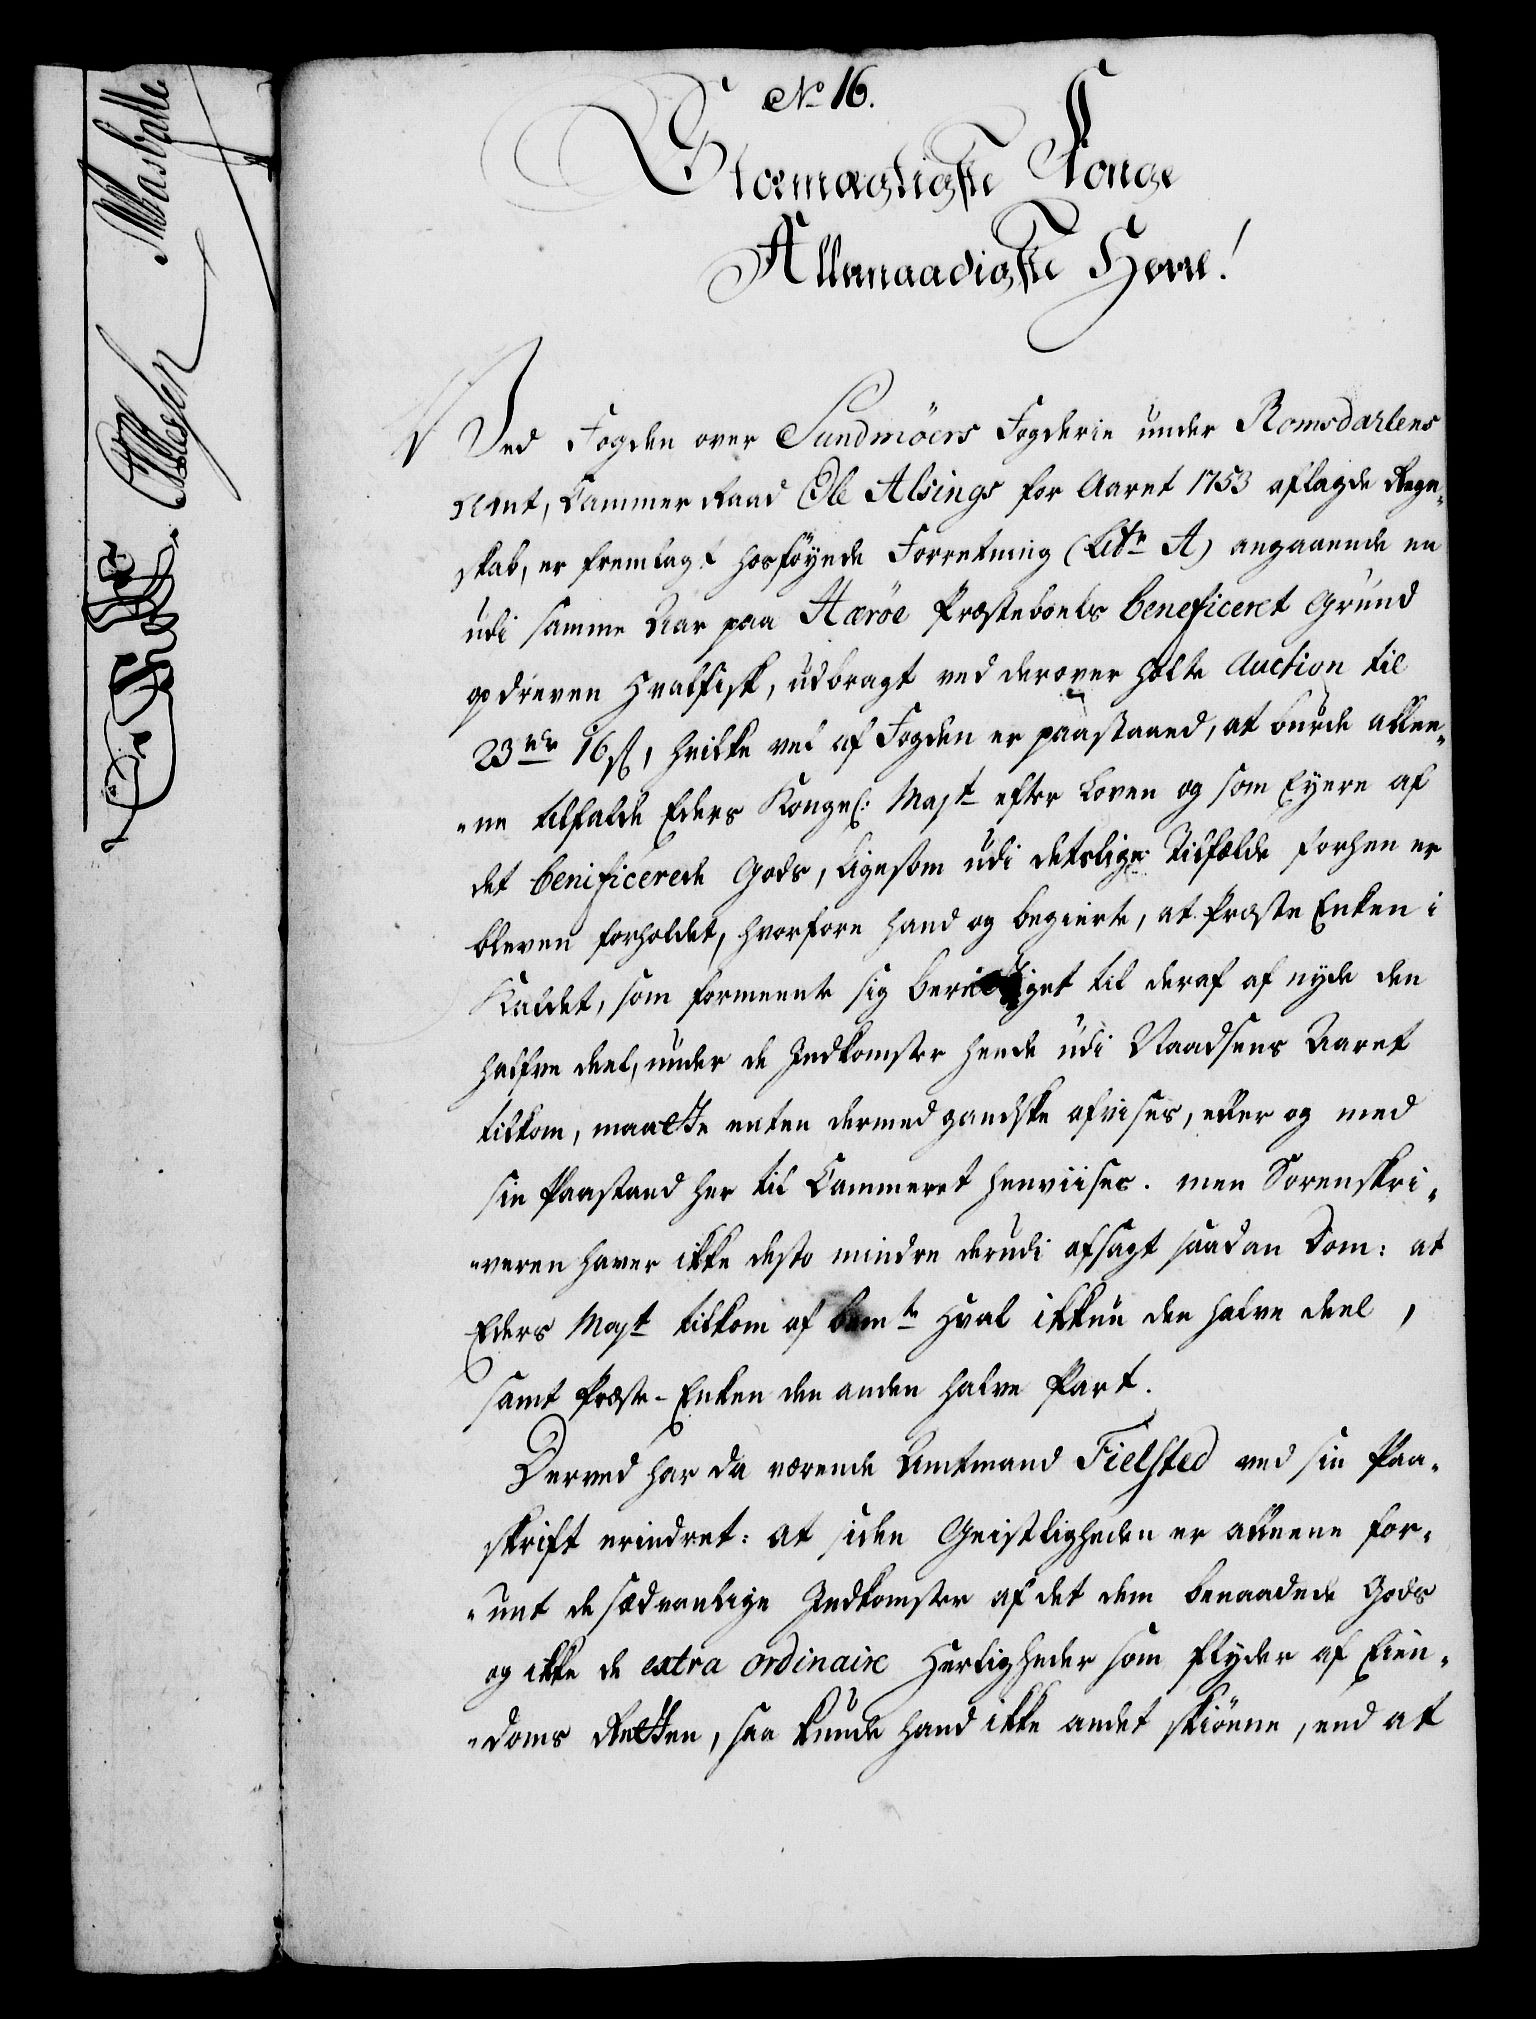 No 16.
Stormægtigste Konge
Allernaadigste Herre!
Ved Fogden over Sundmöers Fogderie under Romsdarlens
Amt, Cammer Raad Ole Alsings for Aaret 1753 aflagde Regn„
skab, er fremlagt hosföyede Forretning (Litr A) angaaende en
udi samme Aar paa Hæröe Præsteboels beneficeret Grund
opdreven Hvalfisk, udbragt ved derover holte Auction til
23 rdr 16 s, hvilke vel af Fogden er paastaaed, at burde allee„
„ne tilfalde Eders Kongel: Majt efter Loven og som Eyere af
det benificerede Gods, ligesom udi detslige Tilfælde forhen er
bleven forholdet, hvorfore hand og begierte, at Præste Enken i
Kaldet, som formeente sig berettiget til deraf af nyde den
halfve deel, under de Indkomster hende udi Naadsens Aaret
tilkom, maatte enten dermed gandske afvises, eller og med
sin Paastand her til Cammeret henviises. men Sorenskri„
„veren haver ikke desto mindre derudi afsagt saadan Dom: at
Eders Majt tilkom af bemte Hval ikkun den halve deel,
samt Præste-Enken den anden halve Part.
Derved har da værende Amtmand Fielsted ved sin Paa„
skrift erindret: at siden Geistligheden er alleene for„
„unt de sædvanlige Indkomster af det dem benaadede Gods
og ikke de extra ordinaire Herligheder som flyder af Eien„
„doms Retten, saa kunde hand ikke andet skiönne, end at